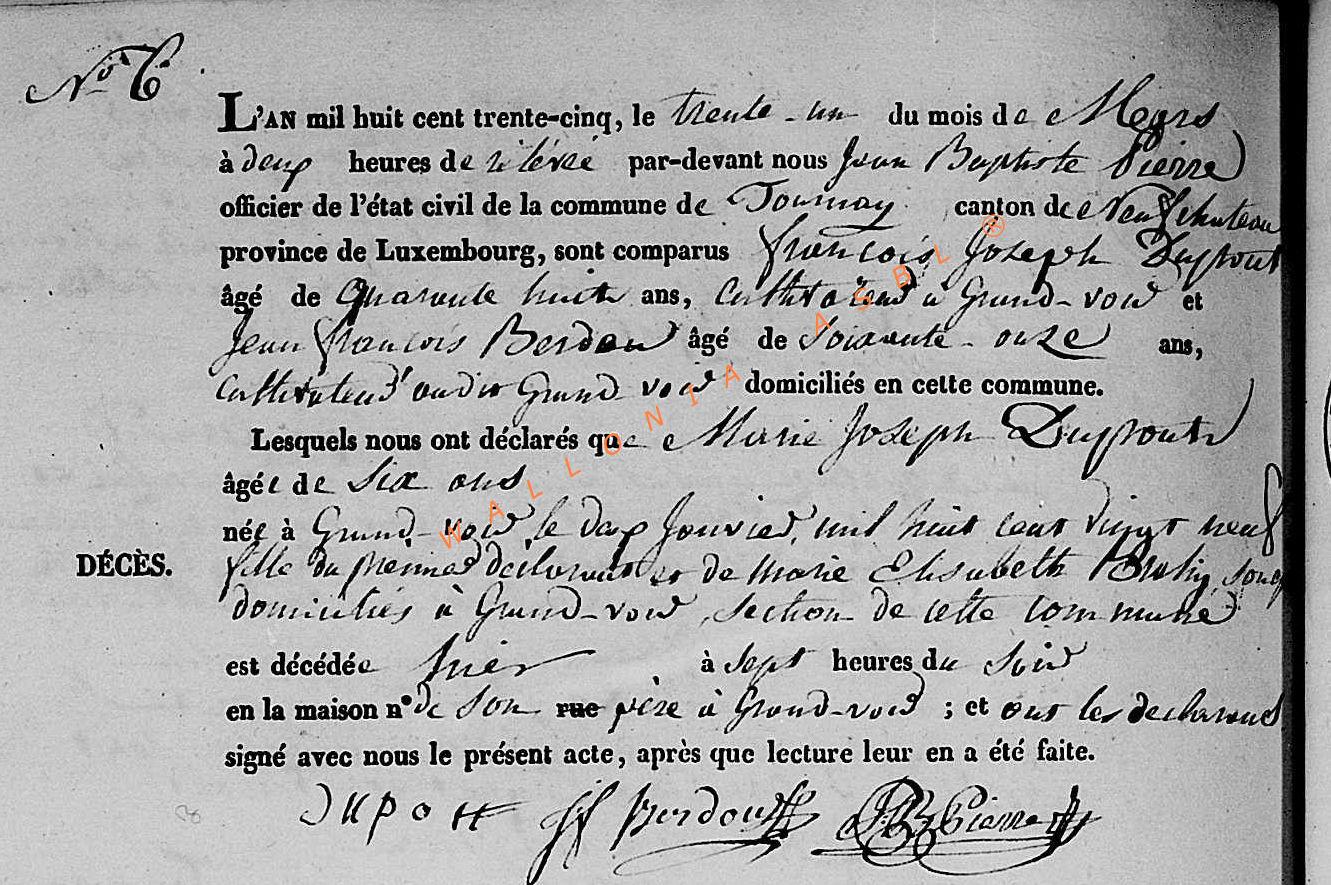 N° 6
L'AN mil huit cent trente-cinq, le trente-un du mois de Mars
à deux heures de rélévée par-devant nous Jean Baptiste Pierre
officier de l'état civil de la commune de Tournay canton de Neufchateau
province de Luxembourg, sont comparus françois Joseph Dupont
âgé de Quarante huit ans, Cultivateur à Grand-voir et
Jean françois Berdou âgé de Soixante-onze ans,
Cultivateur audit Grand-voir domiciliés en cette commune.
Lesquels nous ont déclarés que Marie Joseph Dupont
âgée de Six ans
née à Grand-voir, le deux Janvier, mil huit cent vingt neuf
fille du premier déclarant et de Marie Elisabeth
domiciliés à Grand-voir, section de cette commune
DÉCÈS.
est décédée hier à sept heures du Soir
en la maison n° de son rue père à Grand-voir ; et ont les declarants
signé avec nous le présent acte, après que lecture leur en a été faite.
Dupont JF Berdou JB Pierre
WALLONIA ASBL ®